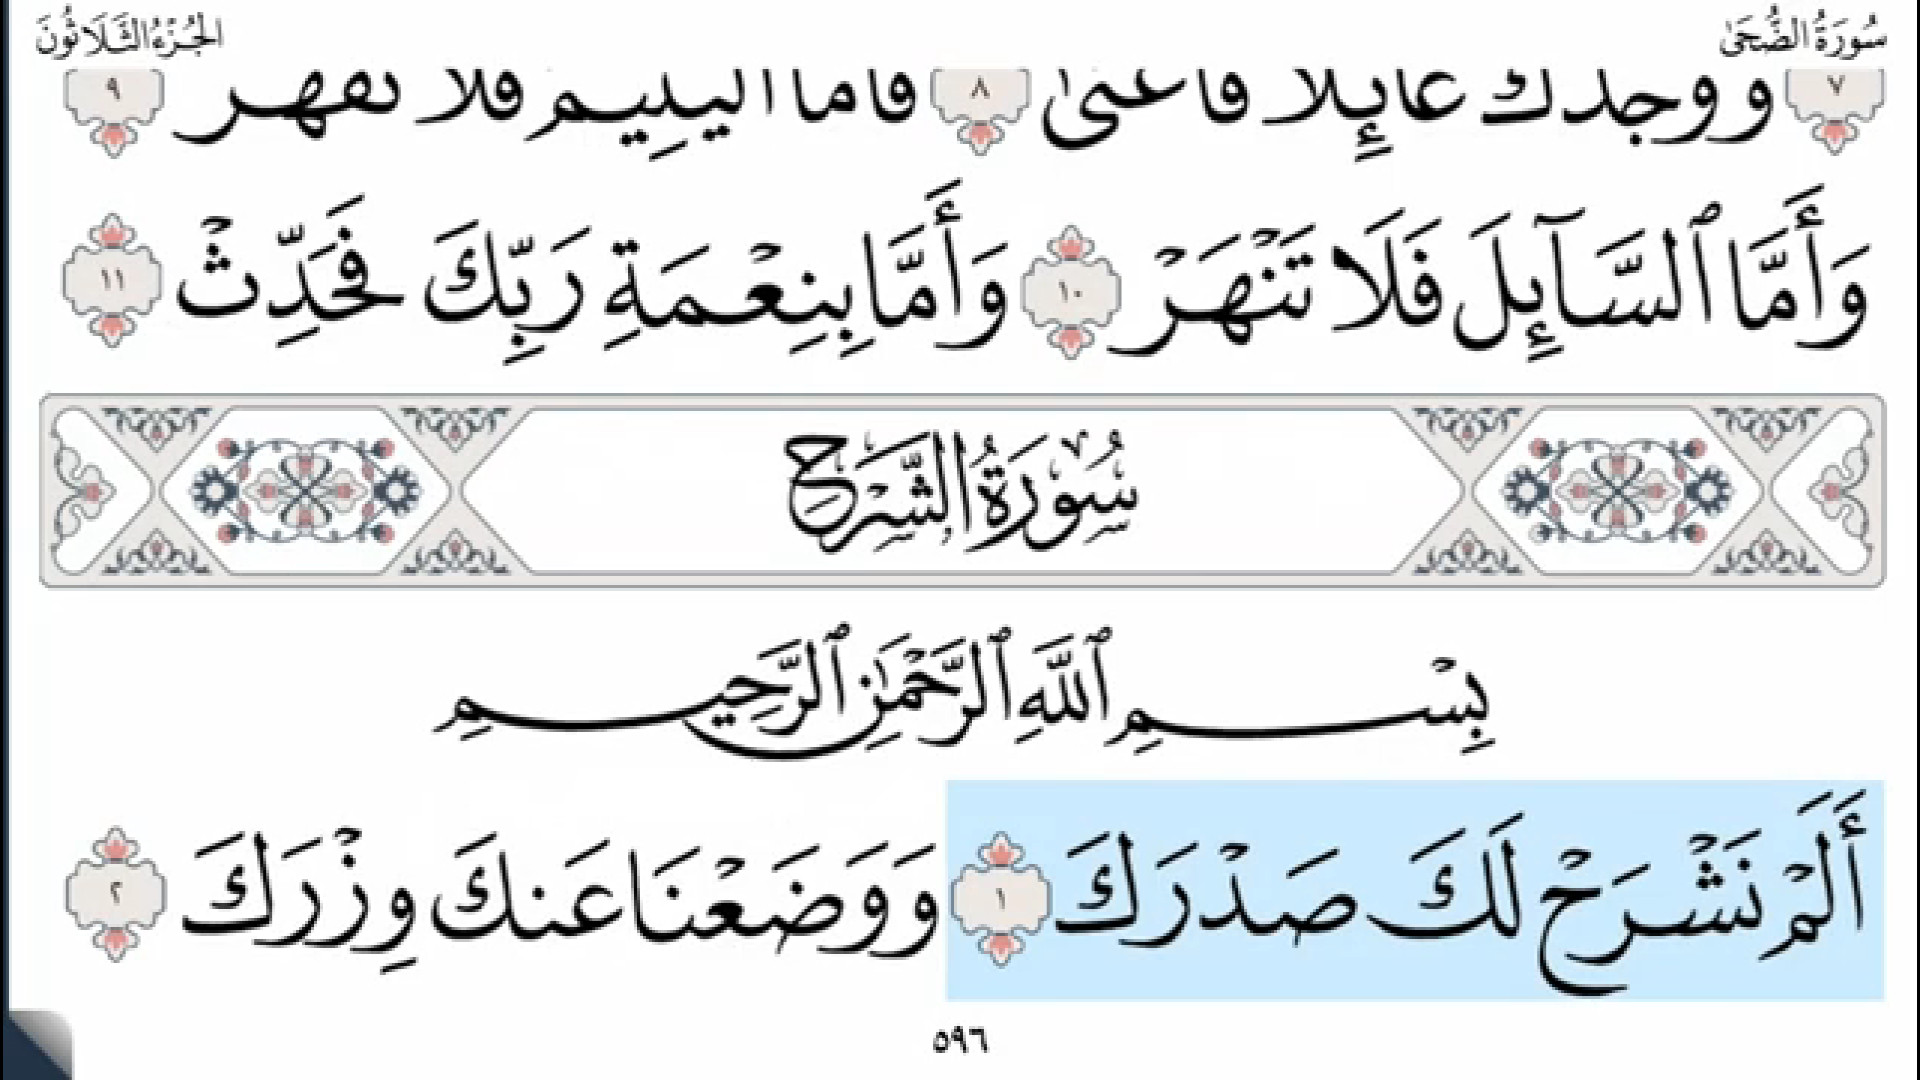 سُورَةُ الضُّحَىٰ الجُزْءُ الثَّلَاثُونَ
٧ وَوَجَدَكَ عَآئِلًا فَأَغْنَىٰ ٨ فَأَمَّا ٱلْيَتِيمَ فَلَا تَقْهَرْ ٩
وَأَمَّا ٱلسَّآئِلَ فَلَا تَنْهَرْ ١٠ وَأَمَّا بِنِعْمَةِ رَبِّكَ فَحَدِّثْ ١١
سُورَةُ الشَّرْحِ
بِسْمِ ٱللَّهِ ٱلرَّحْمَٰنِ ٱلرَّحِيمِ
أَلَمْ نَشْرَحْ لَكَ صَدْرَكَ ١ وَوَضَعْنَا عَنكَ وِزْرَكَ ٢
٥٩٦